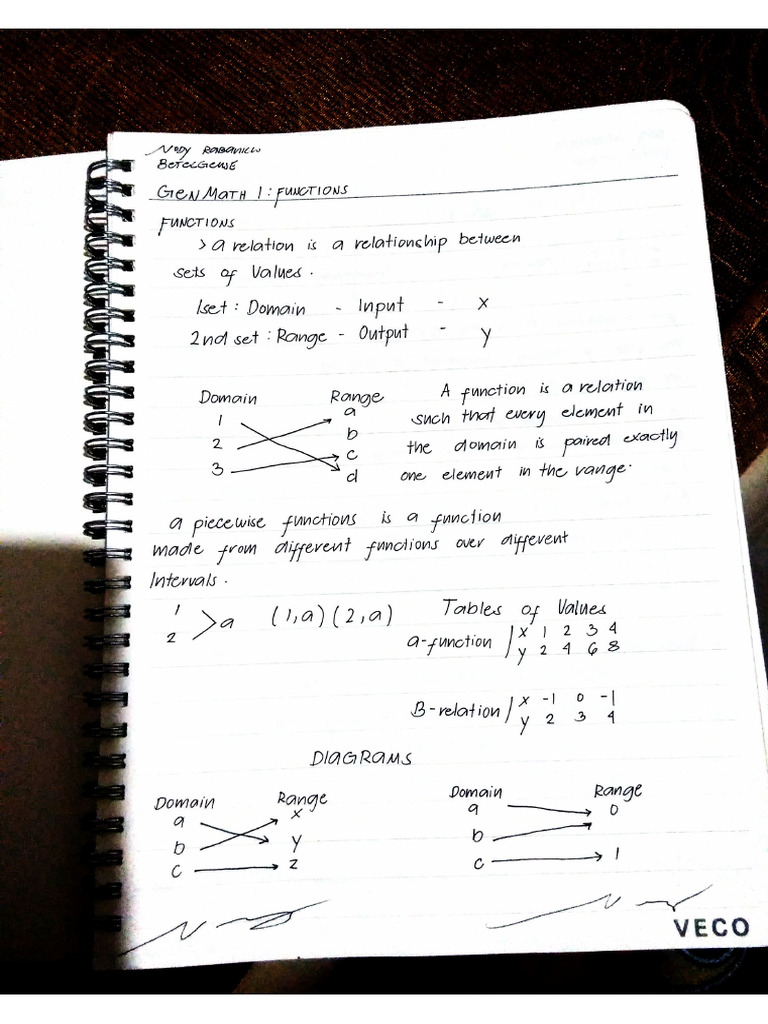 BETELGEUSE
GEN MATH 1: FUNCTIONS
FUNCTIONS
> a relation is a relationship between
sets of Values.
1set : Domain - Input - x
2nd set : Range - Output - y
Domain Range
1 a
2 b
3 c
d
A function is a relation
such that every element in
the domain is paired exactly
one element in the range.
a piecewise functions is a function
made from different functions over different
Intervals.
1
2 > a (1,a) (2,a)
Tables of Values
a-function / x 1 2 3 4
y 2 4 6 8
B-relation / x -1 0 -1
y 2 3 4
DIAGRAMS
Domain Range
a x
b y
c z
Domain Range
a 0
b
c 1
VECO